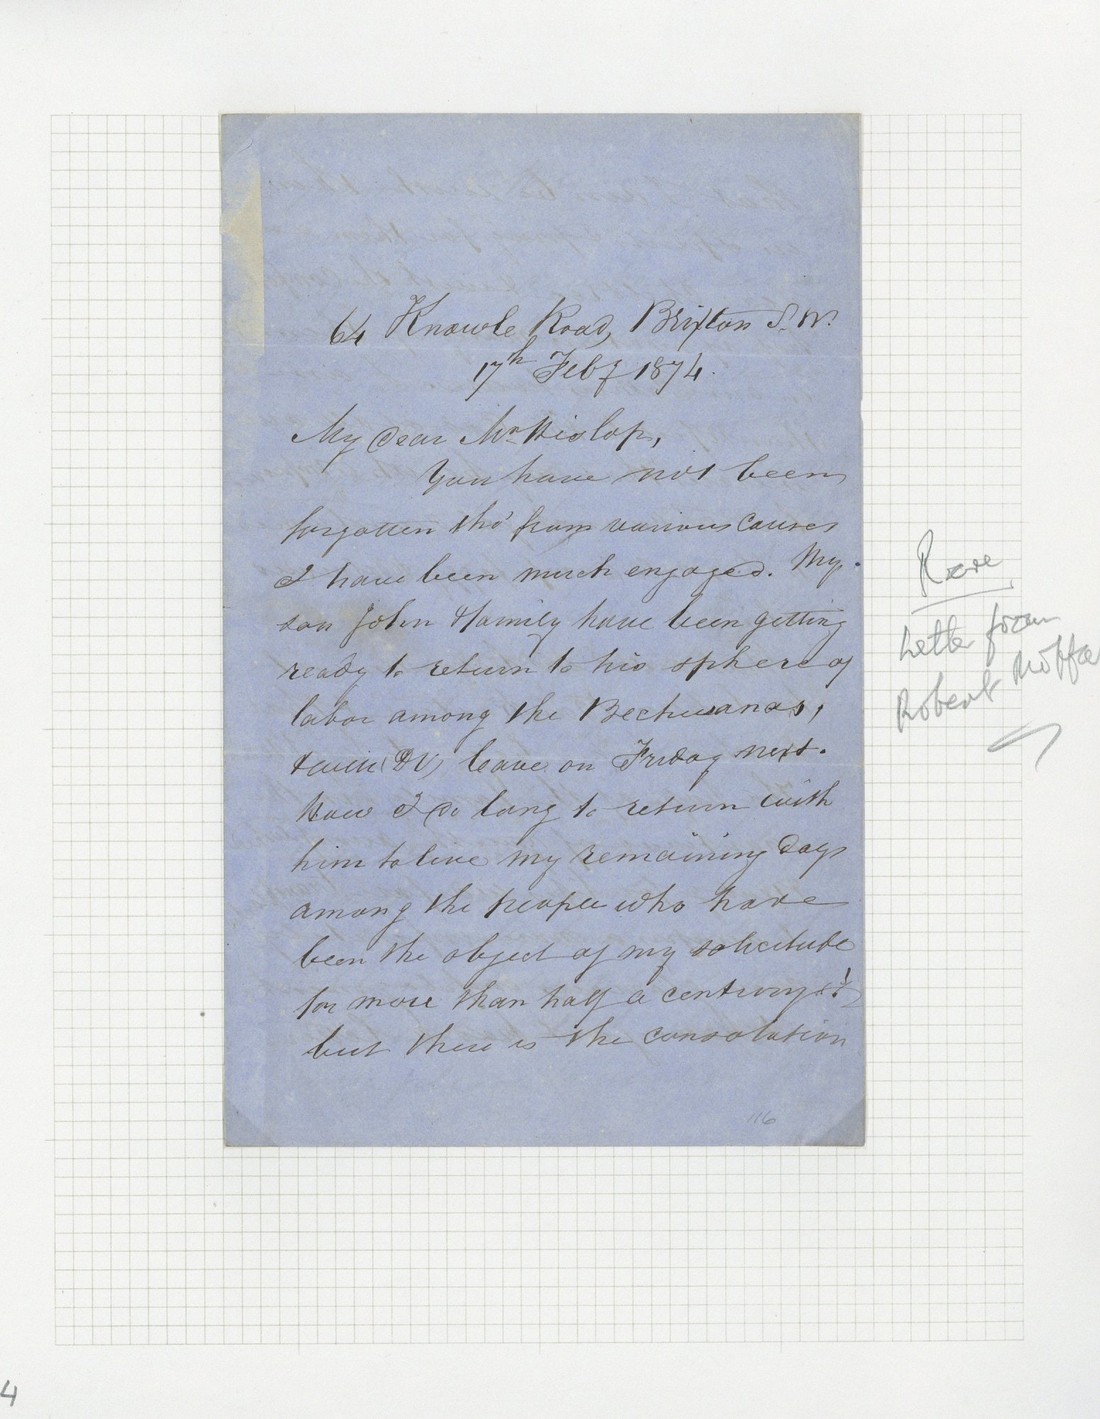 64 Knowle Road, Brixton S.W.
17th Feby 1874.
My dear Mr Hislop,
You have not been
forgotten tho' from various causes
I have been much engaged. My
son John & family have been getting
ready to return to his sphere of
labor among the Bechuanas,
& will (DV) leave on Friday next.
How I do long to return with
him to live my remaining days
among the people who have
been the object of my solicitude
for more than half a century!
but there is the consolation
116
Rare
Letter from
Robert Moffa
4